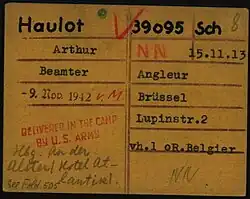 Haulot V 39095 Sch 8
Arthur NN 15.11.13
Beamter Angleur
-9. Nov. 1942 v. M Brüssel
Lupinstr.2
DELIVERED IN THE CAMP
BY U.S. ARMY
vh.1 oR.Belgier
Hbg. An der
Alster/ Hotel At-
lantic.
NN